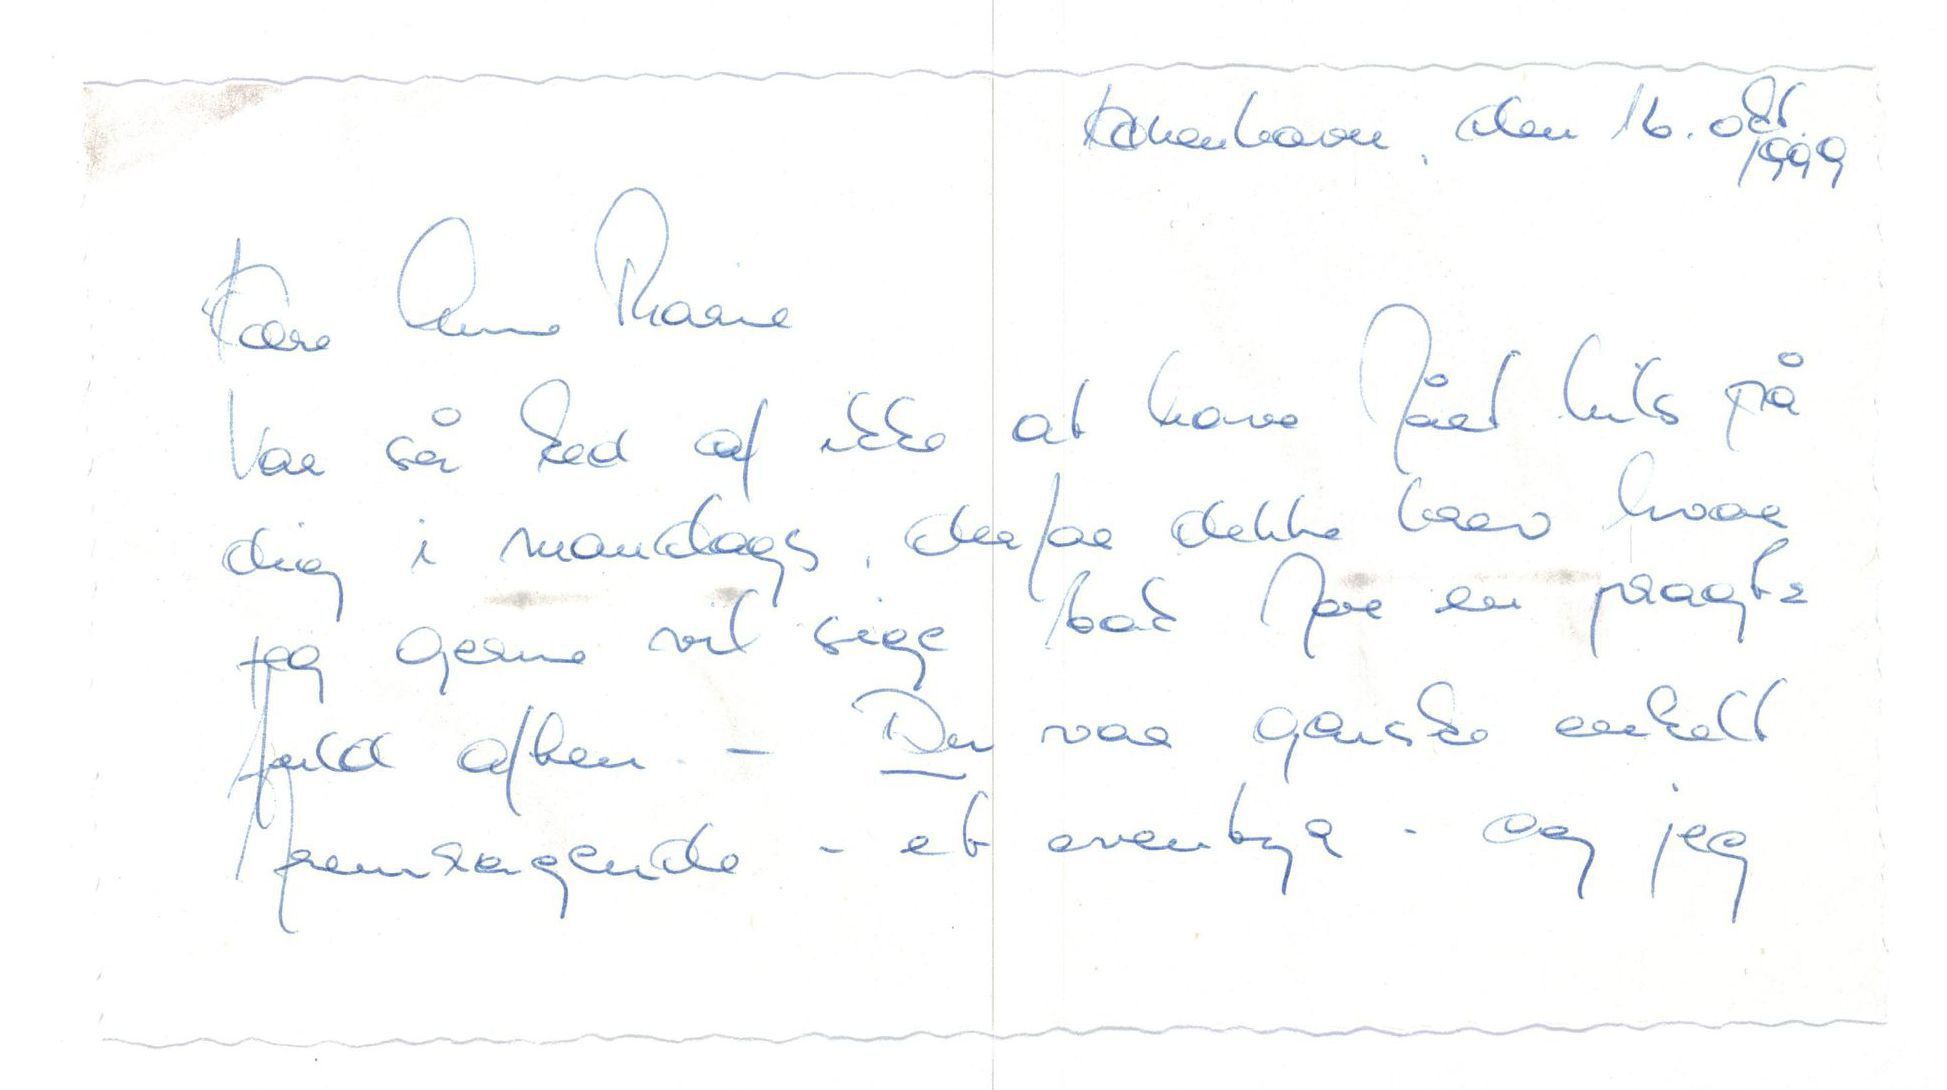 København, den 16. okt.
1999
Kære Anne Marie
Var så ked af ikke at have fået hils på
dig i mandags, derfor dette brev hvor
jeg gerne vil sige tak for en pragt=
fuld aften. - Du var ganske enkelt
fremragende - et eventyr - og jeg